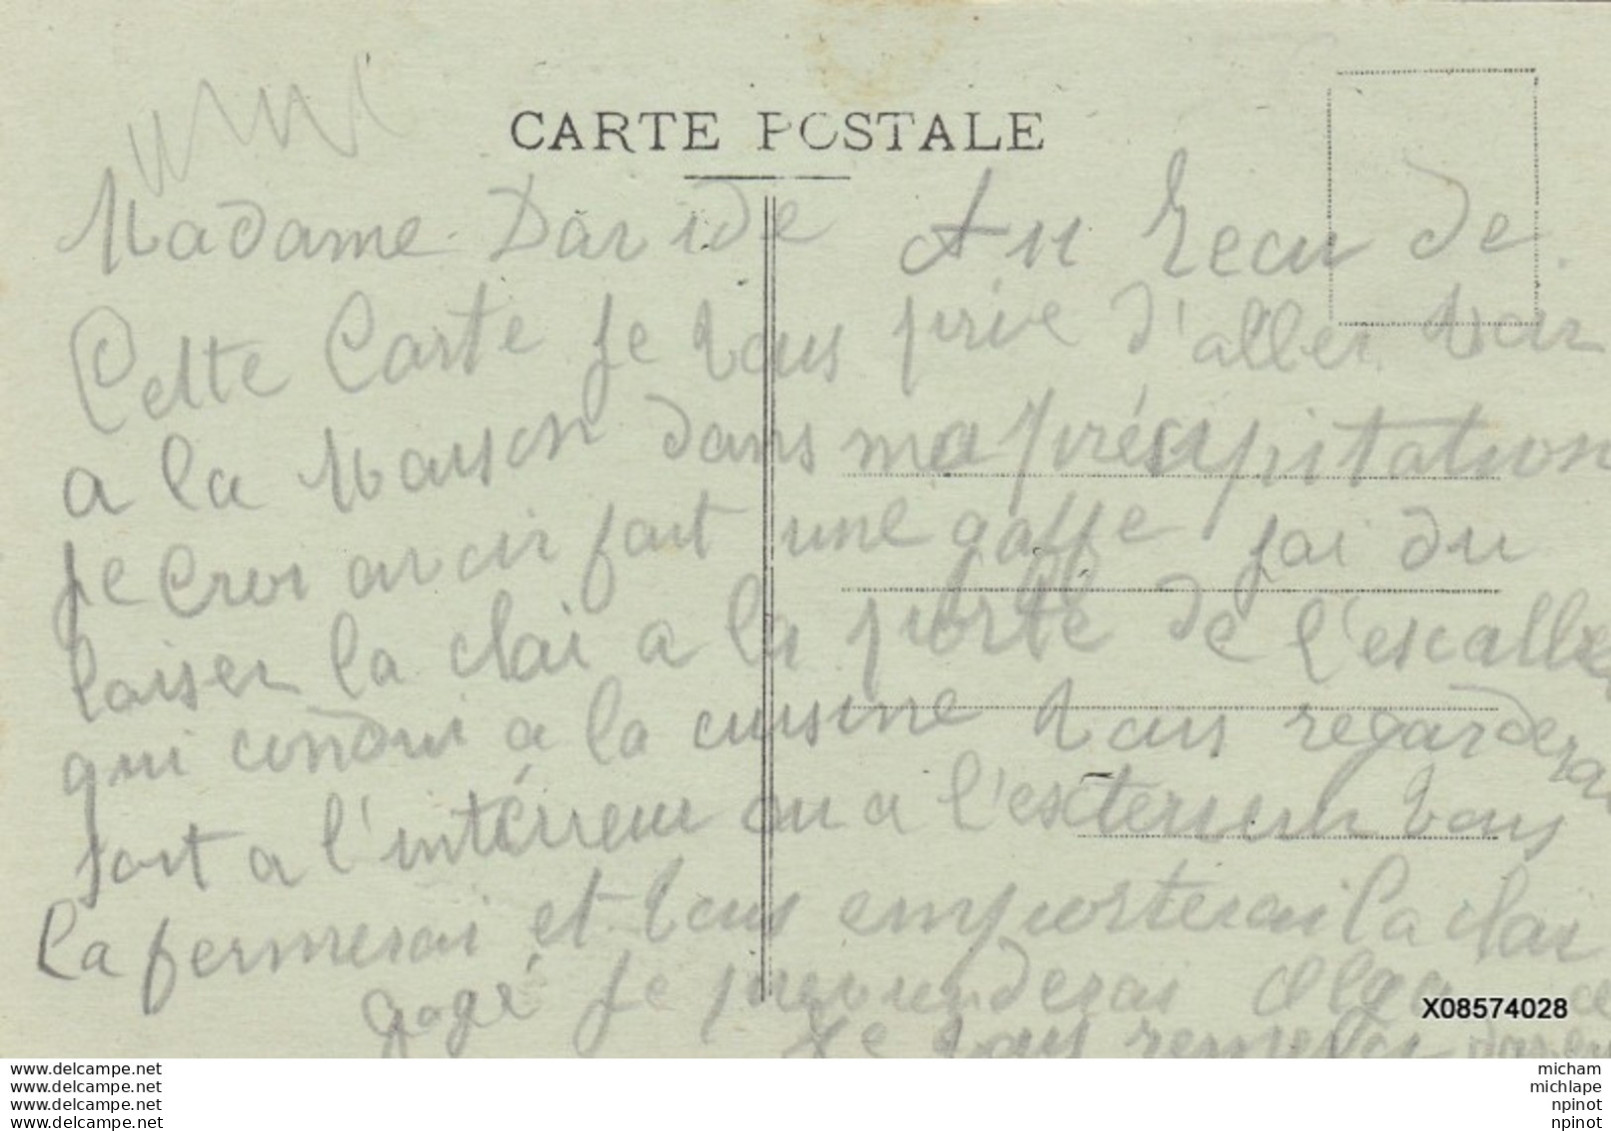 CARTE POSTALE
Madame Davide Au recu de
Cette Carte je vous prie d'aller voir
a la Maison dans ma présipitation
je croi avoir fait une gaffe jai du
laiser la clai a la porte de l'escallier
qui condui a la cuisine vous regarderai
soit a l'intérreur ou a l'exterieur vous
la fermerai et vous emporterai la clai
gagé je previenderai Olga
je vous remerci
X08574028
www.delcampe.net
www.delcampe.net
www.delcampe.net
www.delcampe.net
micham
michlape
npinot
npinot